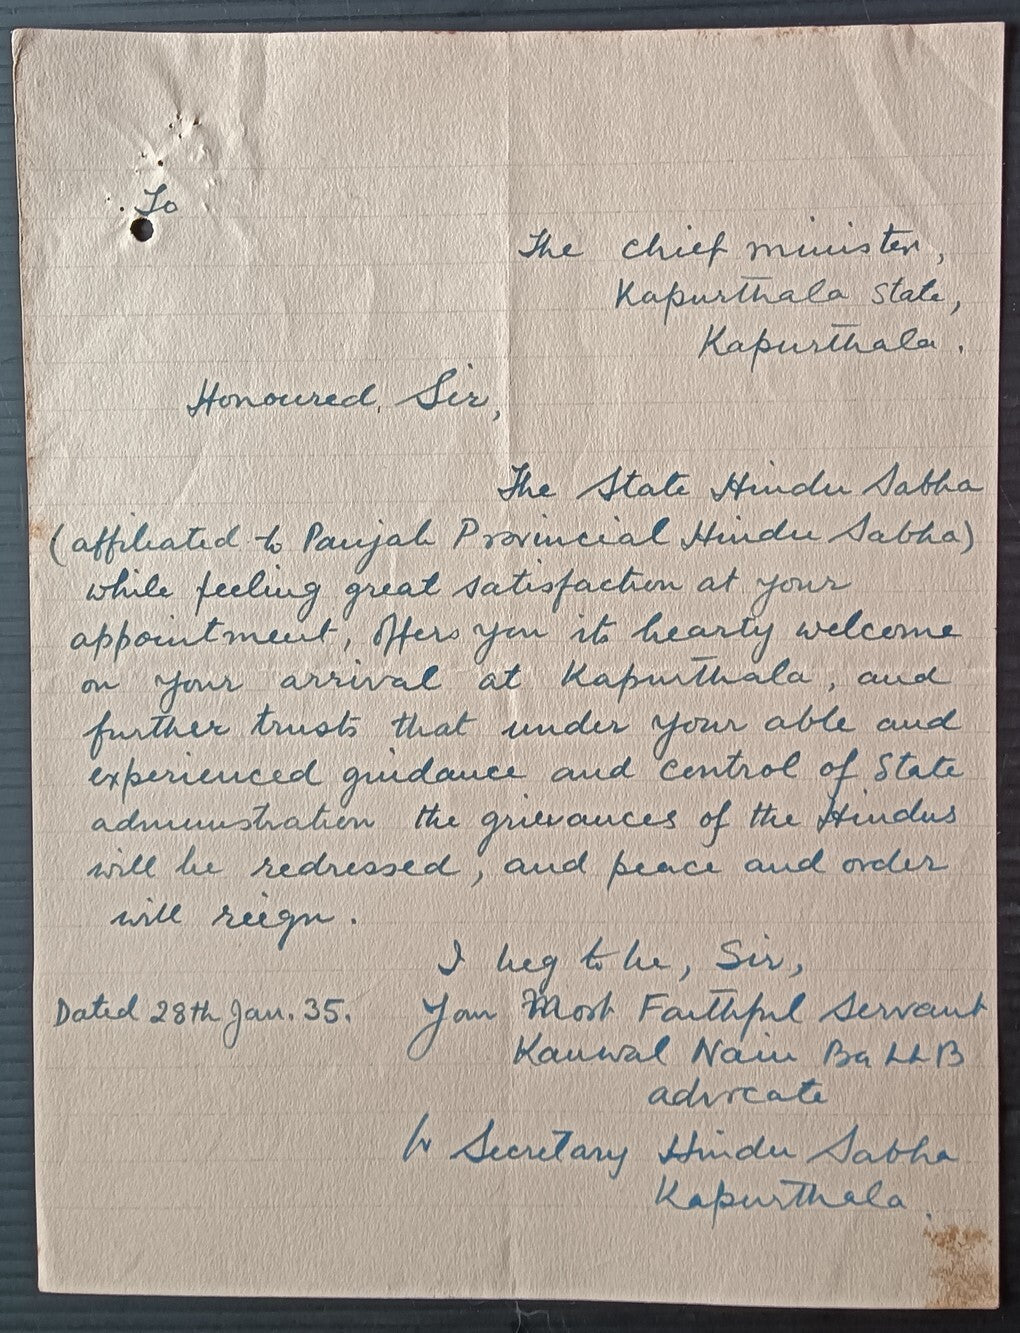 To
The chief minister,
Kapurthala state,
Kapurthala.
Honoured Sir,
The State Hindu Sabha
(affiliated to Panjab Provincial Hindu Sabha)
while feeling great satisfaction at your
appointment, offers you its hearty welcome
on your arrival at Kapurthala, and
further trusts that under your able and
experienced guidance and control of State
administration the grievances of the Hindus
will be redressed, and peace and order
will reign.
I beg to be, Sir,
Dated 28th Jan. 35. Your Most Faithful servant
Kanwal Nain Ba LLB
advocate
Secretary Hindu Sabha
Kapurthala.